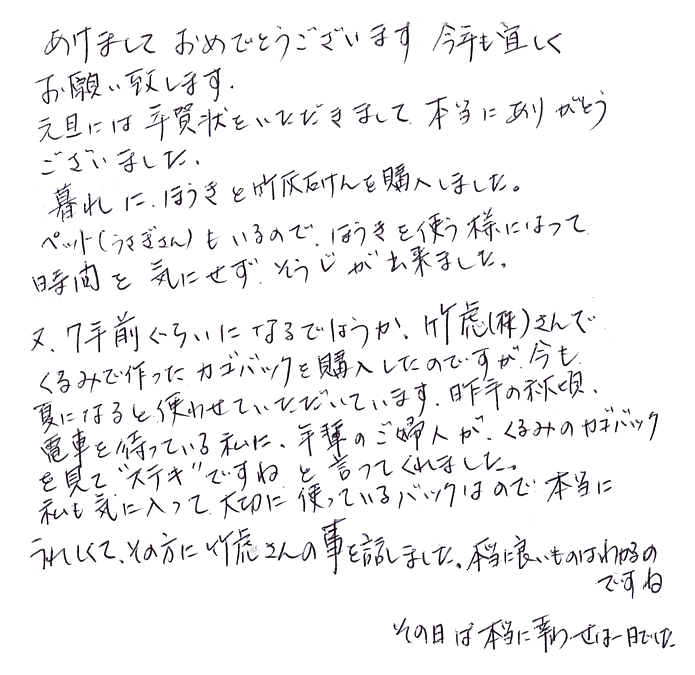 あけまして おめでとうございます 今年も宜しく
お願い致します.
元旦には年賀状をいただきまして、本当にありがとう
ございました、
暮れに、ほうきと竹灰石けんを購入しました。
ペット(うさぎさん)もいるので、ほうきを使う様になって
時間を気にせず、そうじが出来ました。
又、7年前ぐらいになるでしょうか、竹虎(株)さんで
くるみで作ったカゴバックを購入したのですが、今も
夏になると、使わせていただいています、昨年の秋頃、
電車を待っている私に、年輩のご婦人が、くるみのカゴバック
を見て"ステキ"ですね と言ってくれました。
私も気に入って、大切に使っているバックなので本当に
うれしくて、その方に竹虎さんの事を話しました。本当に良いものはわかるの
ですね
その日は本当に幸わせな一日でした